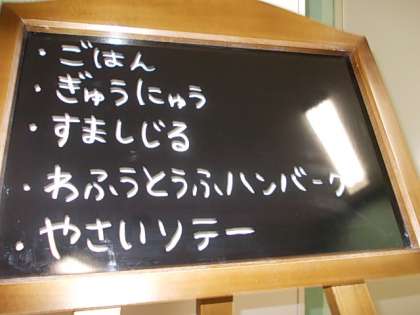 ・ごはん
・ぎゅうにゅう
・すましじる
・わふうとうふハンバーグ
・やさいソテー